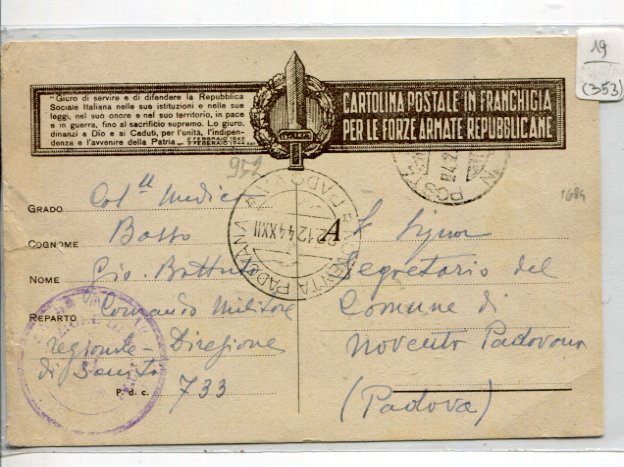 19
(353)
"Giuro di servire e di difendere la Repubblica
Sociale Italiana nelle sue istituzioni e nelle sue
leggi, nel suo onore e nel suo territorio, in pace
e in guerra, fino al sacrificio supremo. Lo giuro,
dinanzi a Dio e ai Caduti, per l'unità, l'indipen-
denza e l'avvenire della Patria„.
9 FEBBRAIO
CARTOLINA POSTALE IN FRANCHIGIA
PER LE FORZE ARMATE REPUBBLICANE
POSTA
946
1684
GRADO Col.ll Medico
COGNOME Basso
NOME Gio. Battista
REPARTO Comando Militare
regionale - Direzione
di Sanità
P. d. c. 733
PADOVANA
PADOVA
2 12 44 XXII
A
Signor
Segretario del
Comune di
Noventa Padovana
(Padova)